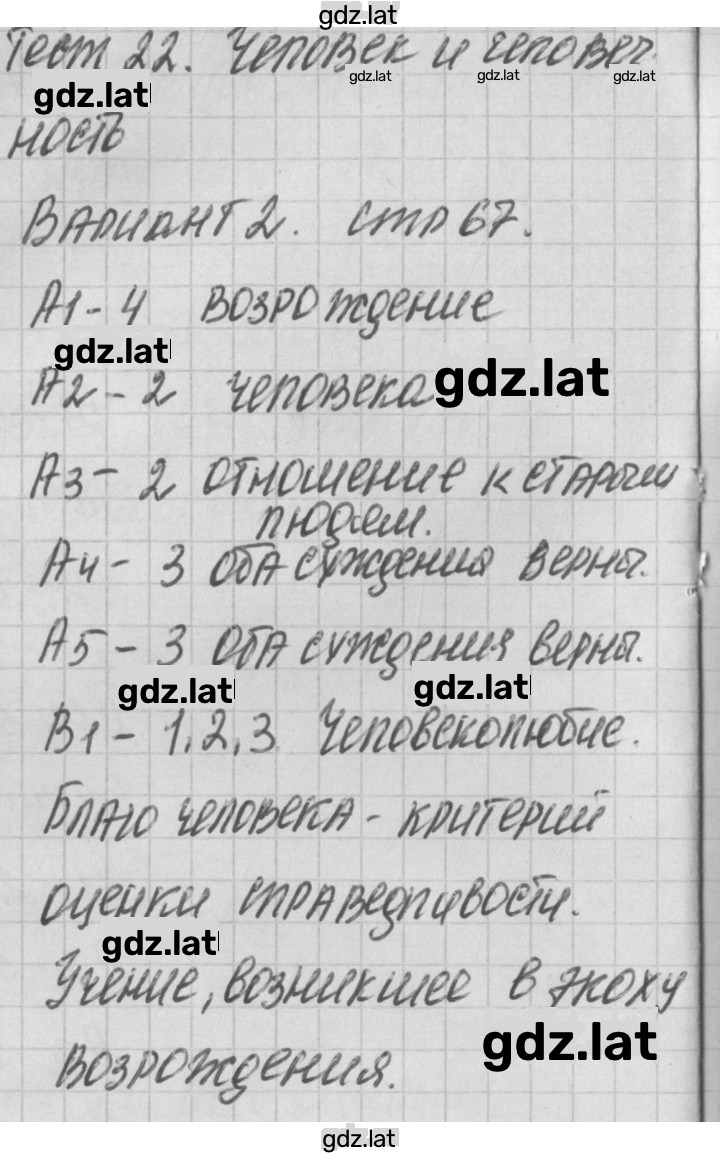 gdz.lat
Тест 22. Человек и человеч
gdz.lat gdz.lat gdz.lat
gdz.lat
ность
Вариант 2. стр 67.
А1 - 4 Возрождение
gdz.lat
А2 - 2 человека gdz.lat
А3 - 2 отношение к старым
людям.
А4 - 3 оба суждения верны.
А5 - 3 оба суждения верны.
gdz.lat gdz.lat
В1 - 1,2,3 Человеколюбие.
Благо человека - критерий
оценки справедливости.
gdz.lat
Учение, возникшее в эпоху
gdz.lat
Возрождения.
gdz.lat